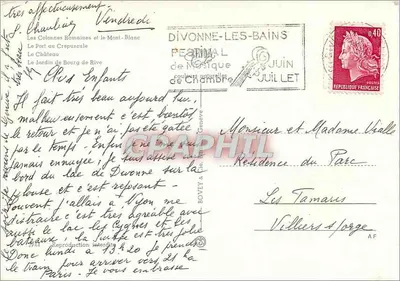 très affectueusement
P. Chaubier Vendredi
Les Colonnes Romaines et le Mont-Blanc
Le Port au Crépuscule
Le Château
Le Jardin du Bourg de Rive
Chers Enfants
Il fait très beau aujourd'hui,
malheureusement c'est bientôt
le retour et je n'ai pas été gâtée
par le temps - Enfin je ne me suis
jamais ennuyée. Je suis assise au
bord du Lac de Divonne sur la
pelouse et c'est reposant -
Souvent j'allais à Nyon me
distraire c'est très agréable avec
aussi le lac les cygnes et les
bateaux - la Suisse est très jolie
Donc lundi à 13h20 je prends
le train pour arriver vers 21h à
Paris - Je vous embrasse
Reproduction interdite
DIVONNE-LES-BAINS
FESTIVAL
de Musique
de Chambre
JUIN
JUILLET
0,40
REPUBLIQUE FRANÇAISE
CPAPHIL
Monsieur et Madame Vialle
Résidence du Parc
Les Tamaris
Villiers s/orge